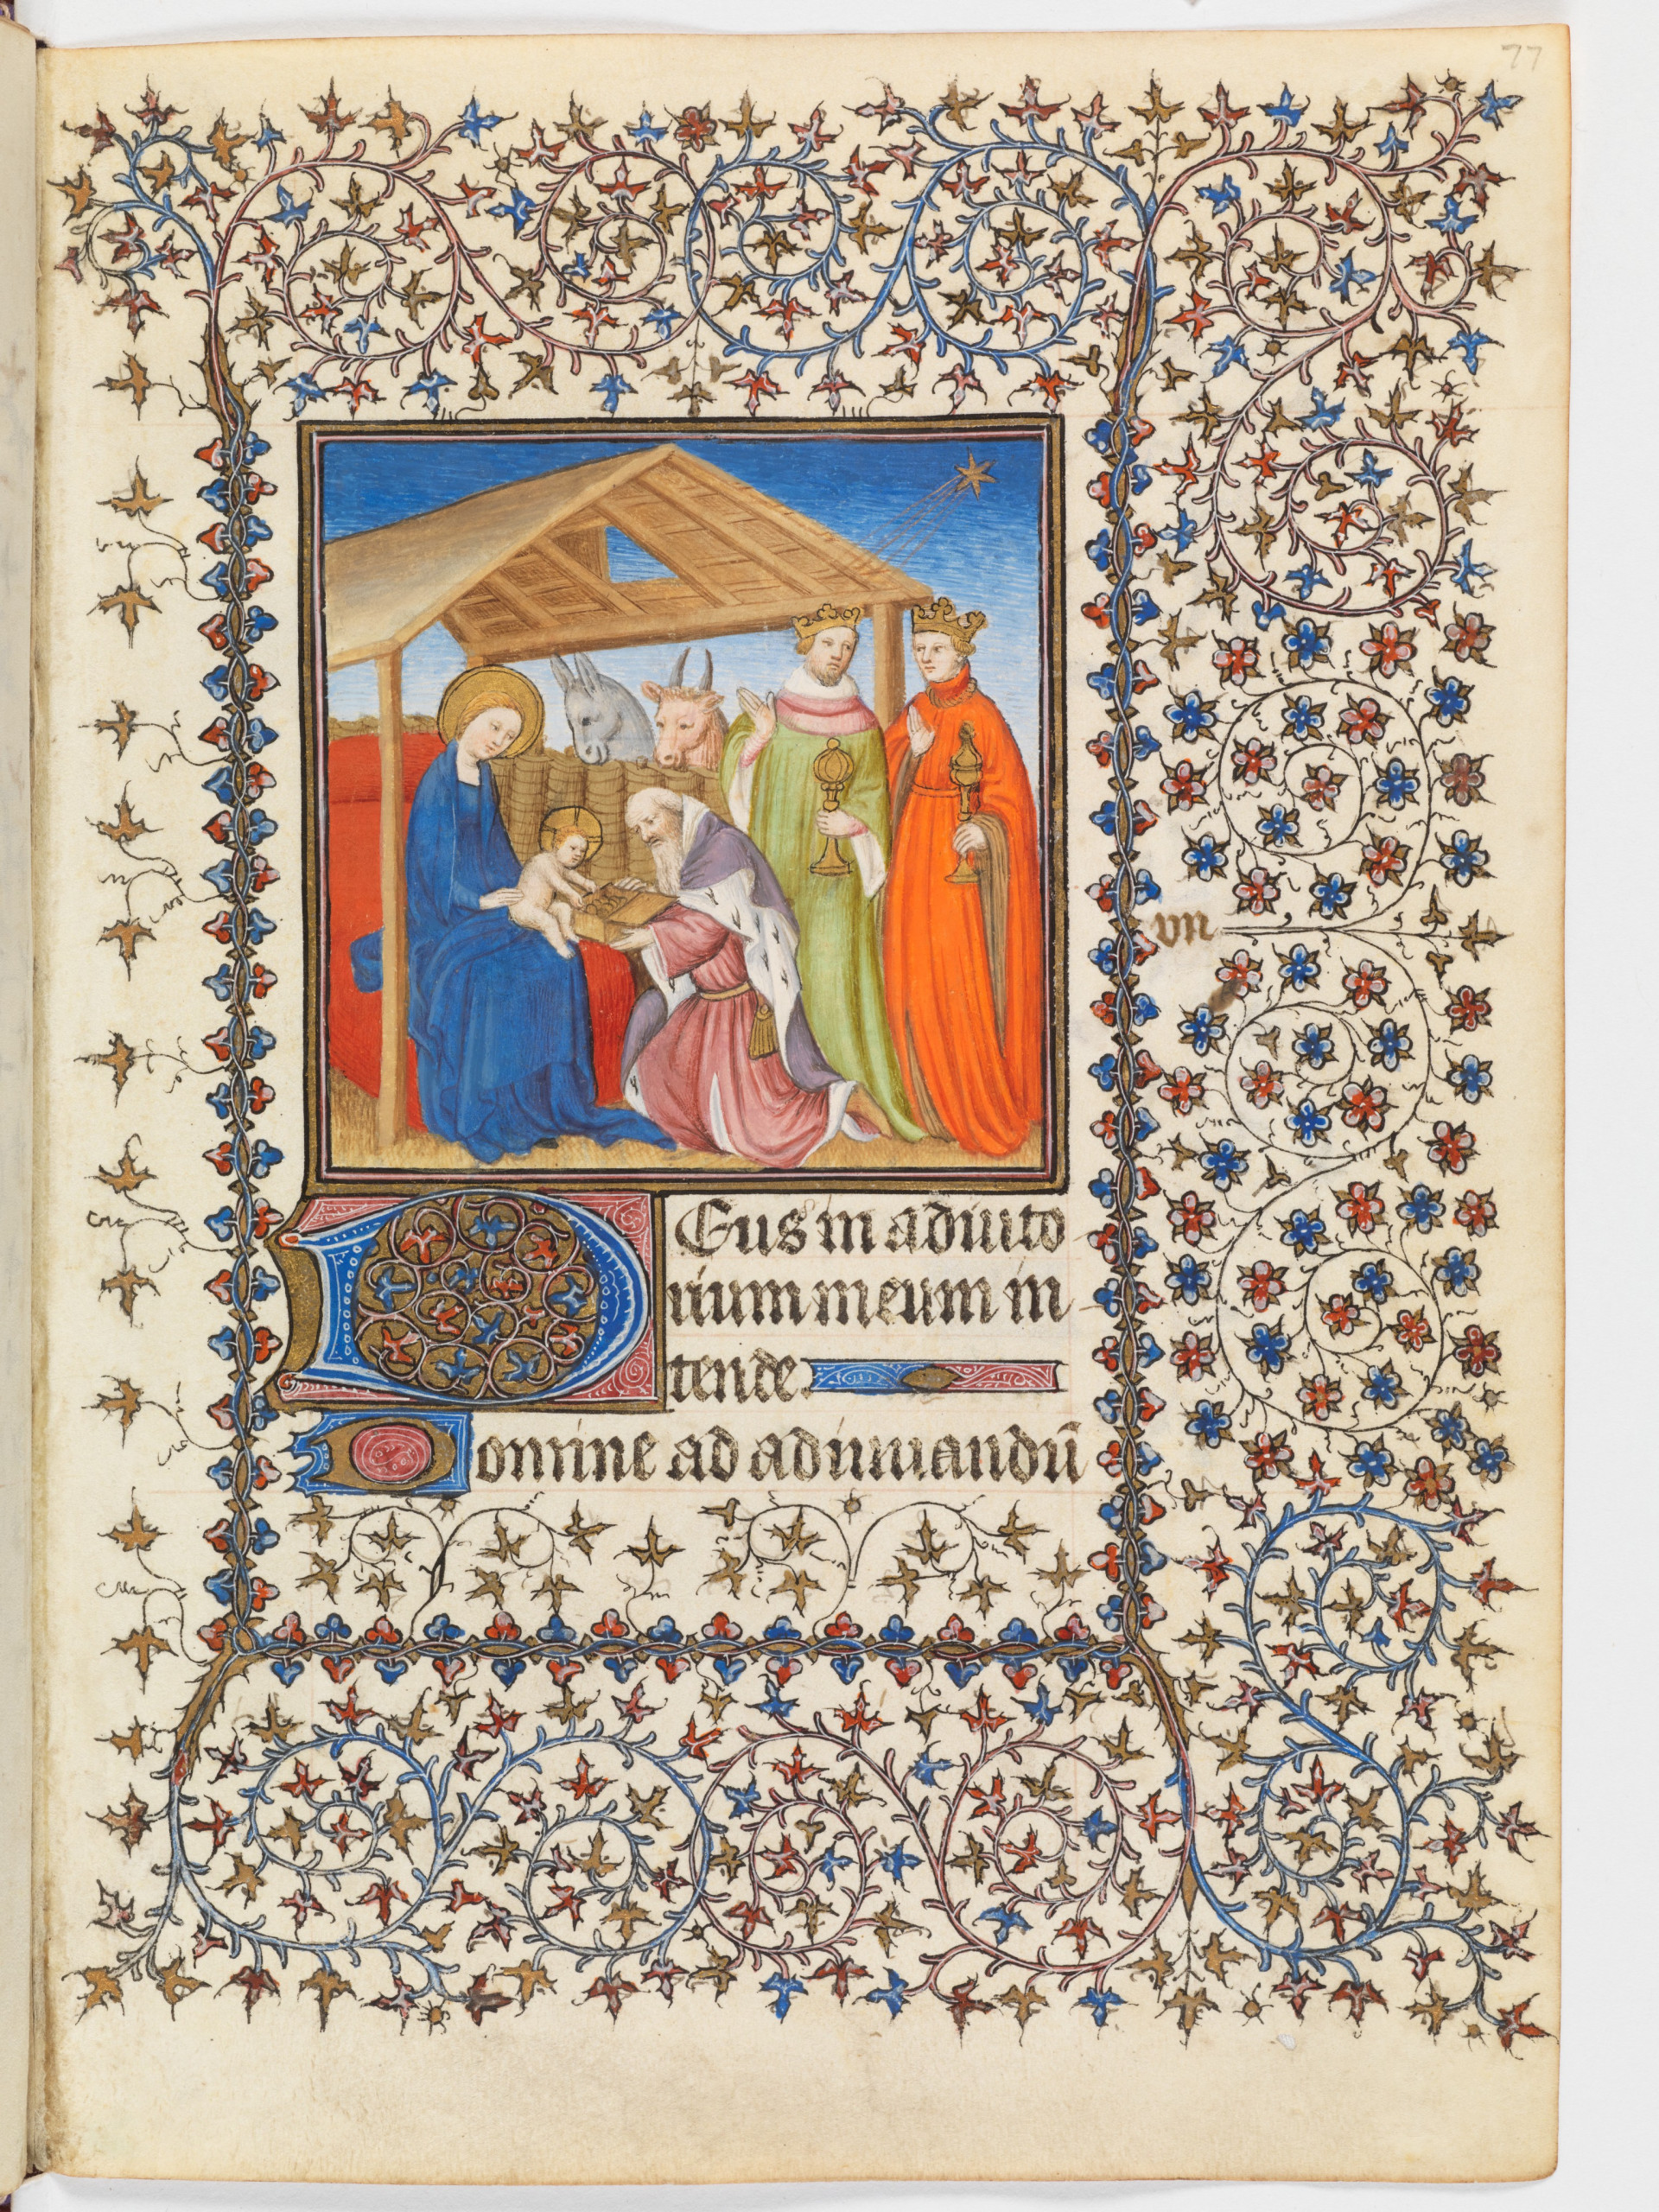 77
Deus in adiuto
rium meum in
tende.
Domine ad adiuuandū